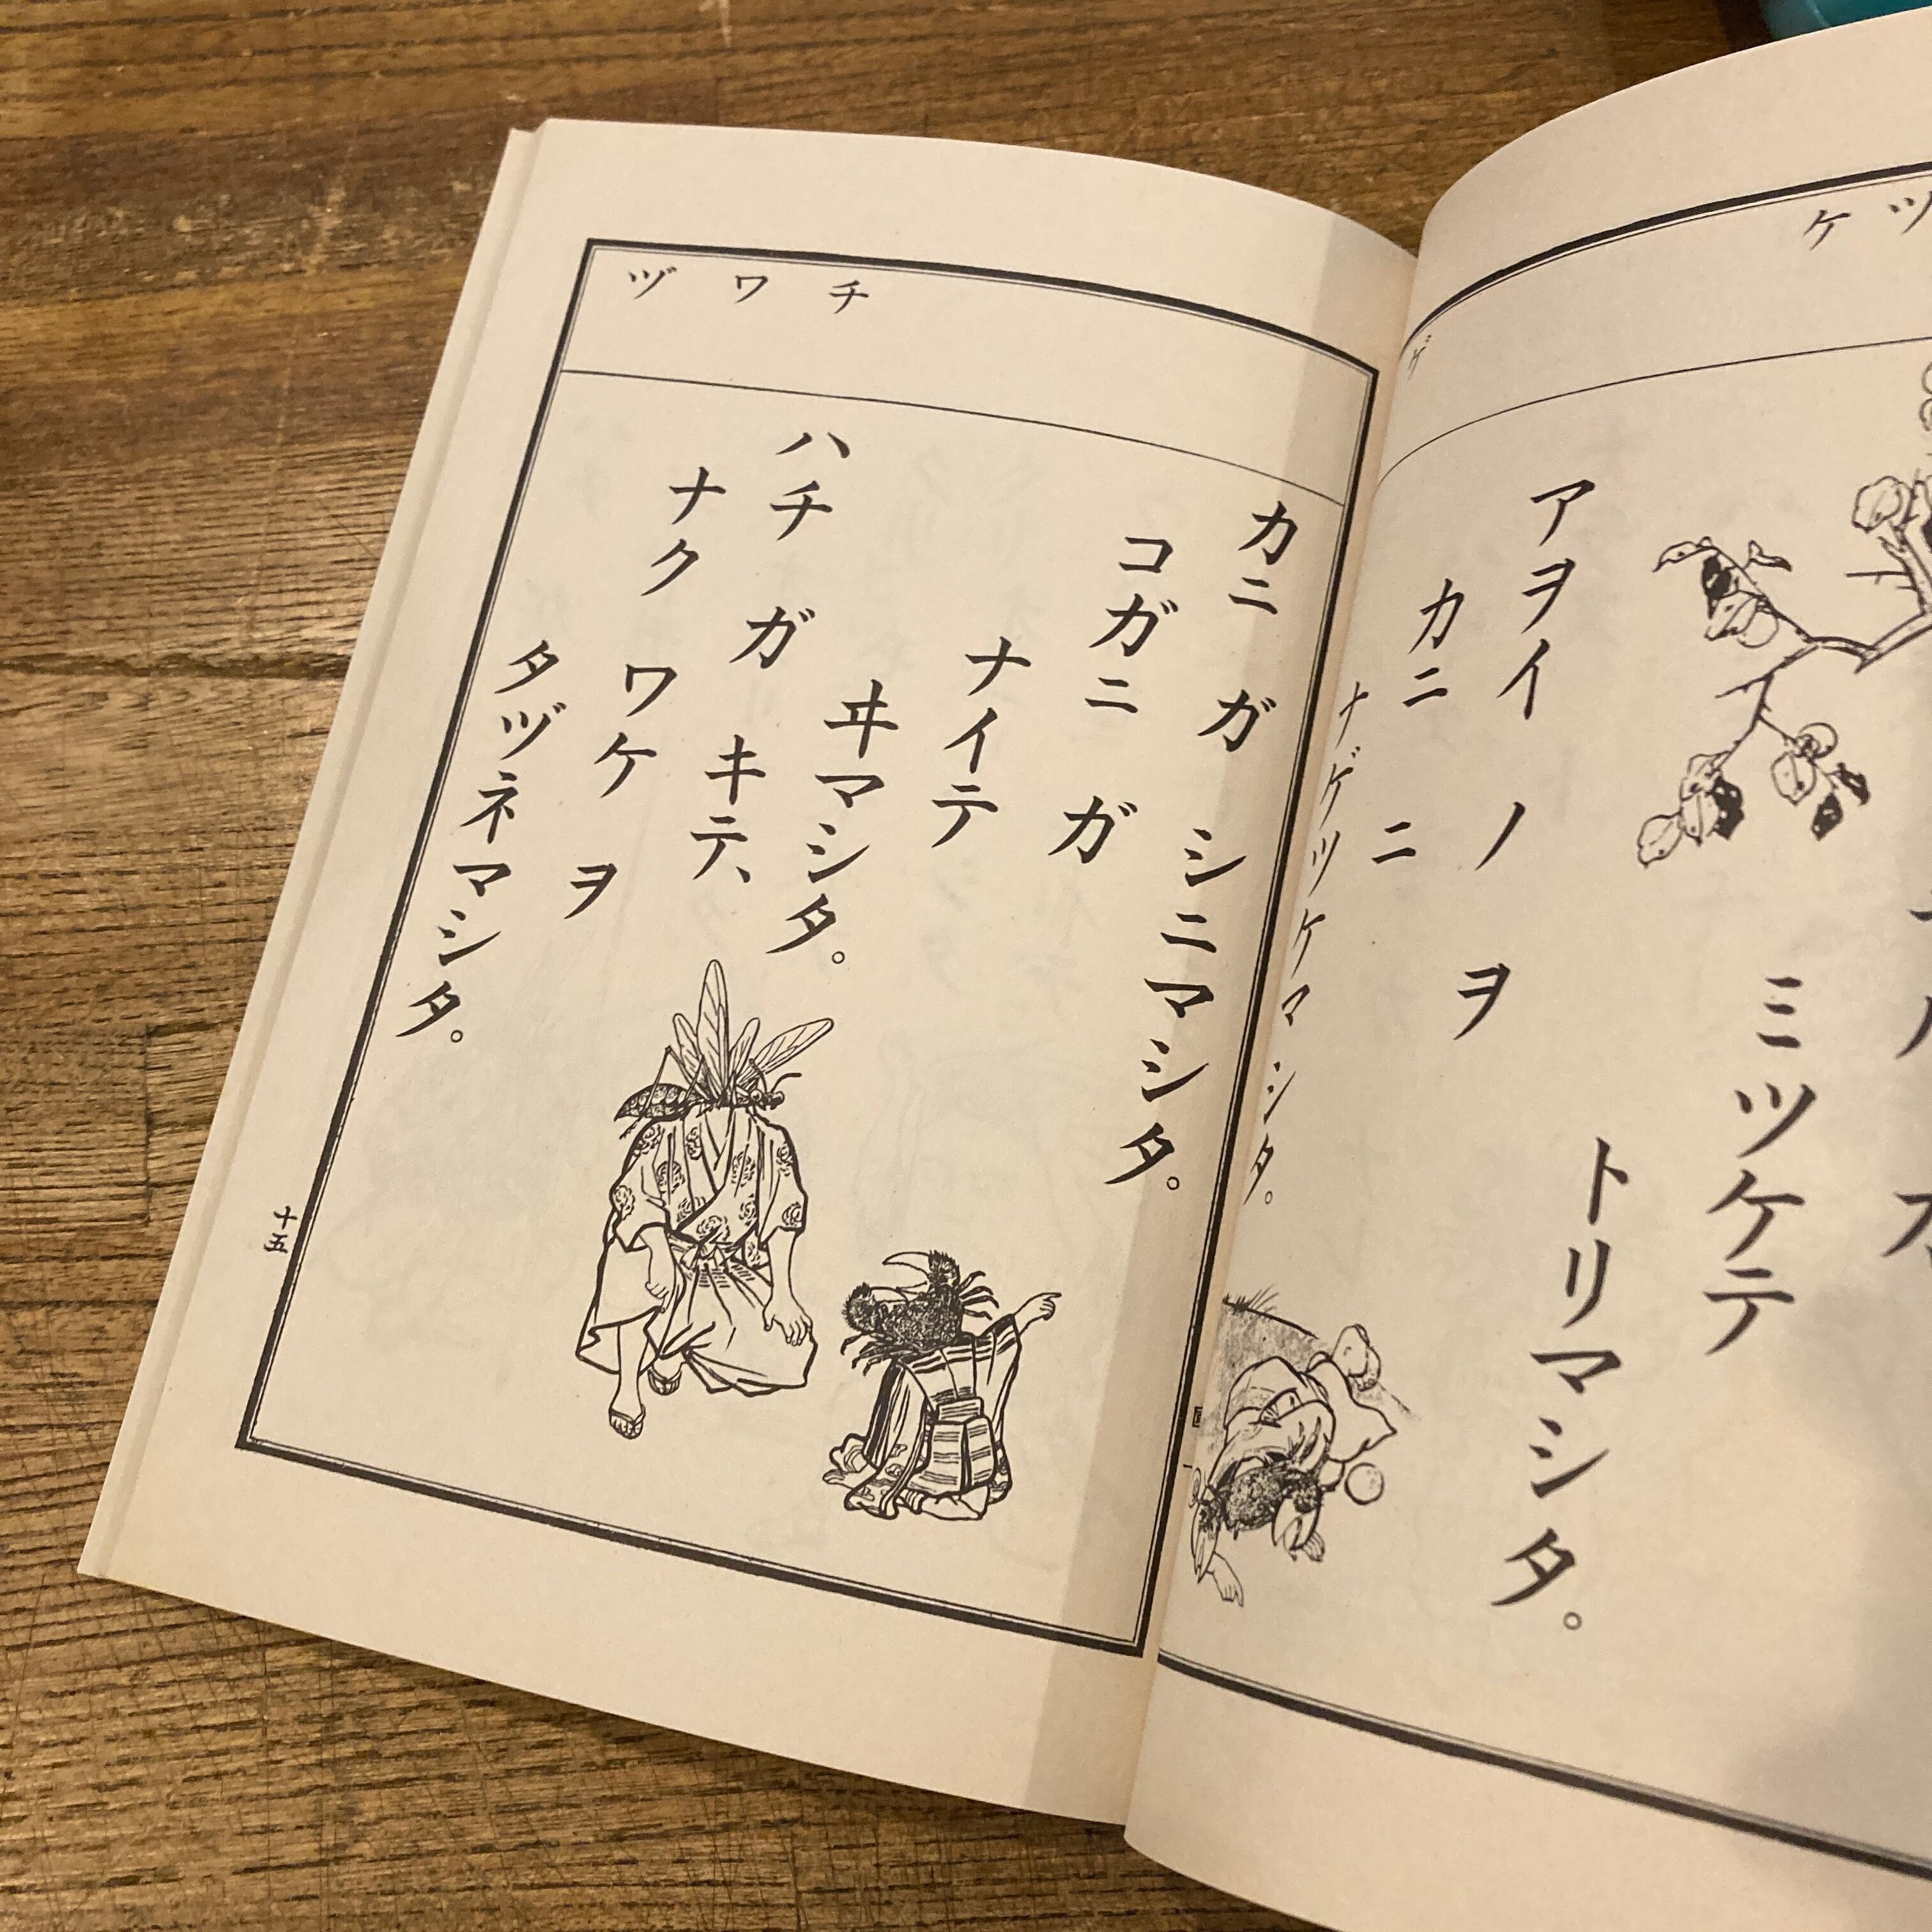 ツ ケ ゲ
ミツケテ
トリマシタ。
アヲイ ノ ヲ
カニ ニ
ナゲツケマシタ。
チ ワ ヅ
カニ ガ シニマシタ。
コガニ ガ
ナイテ
ヰマシタ。
ハチ ガ キテ、
ナク ワケ ヲ
タヅネマシタ。
十五